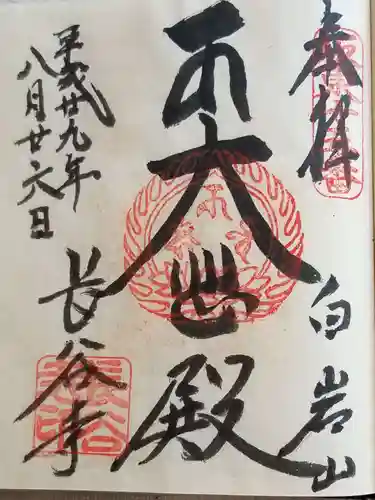 奉拝
白岩山
大悲殿
長谷寺
平成廿九年
八月廿六日